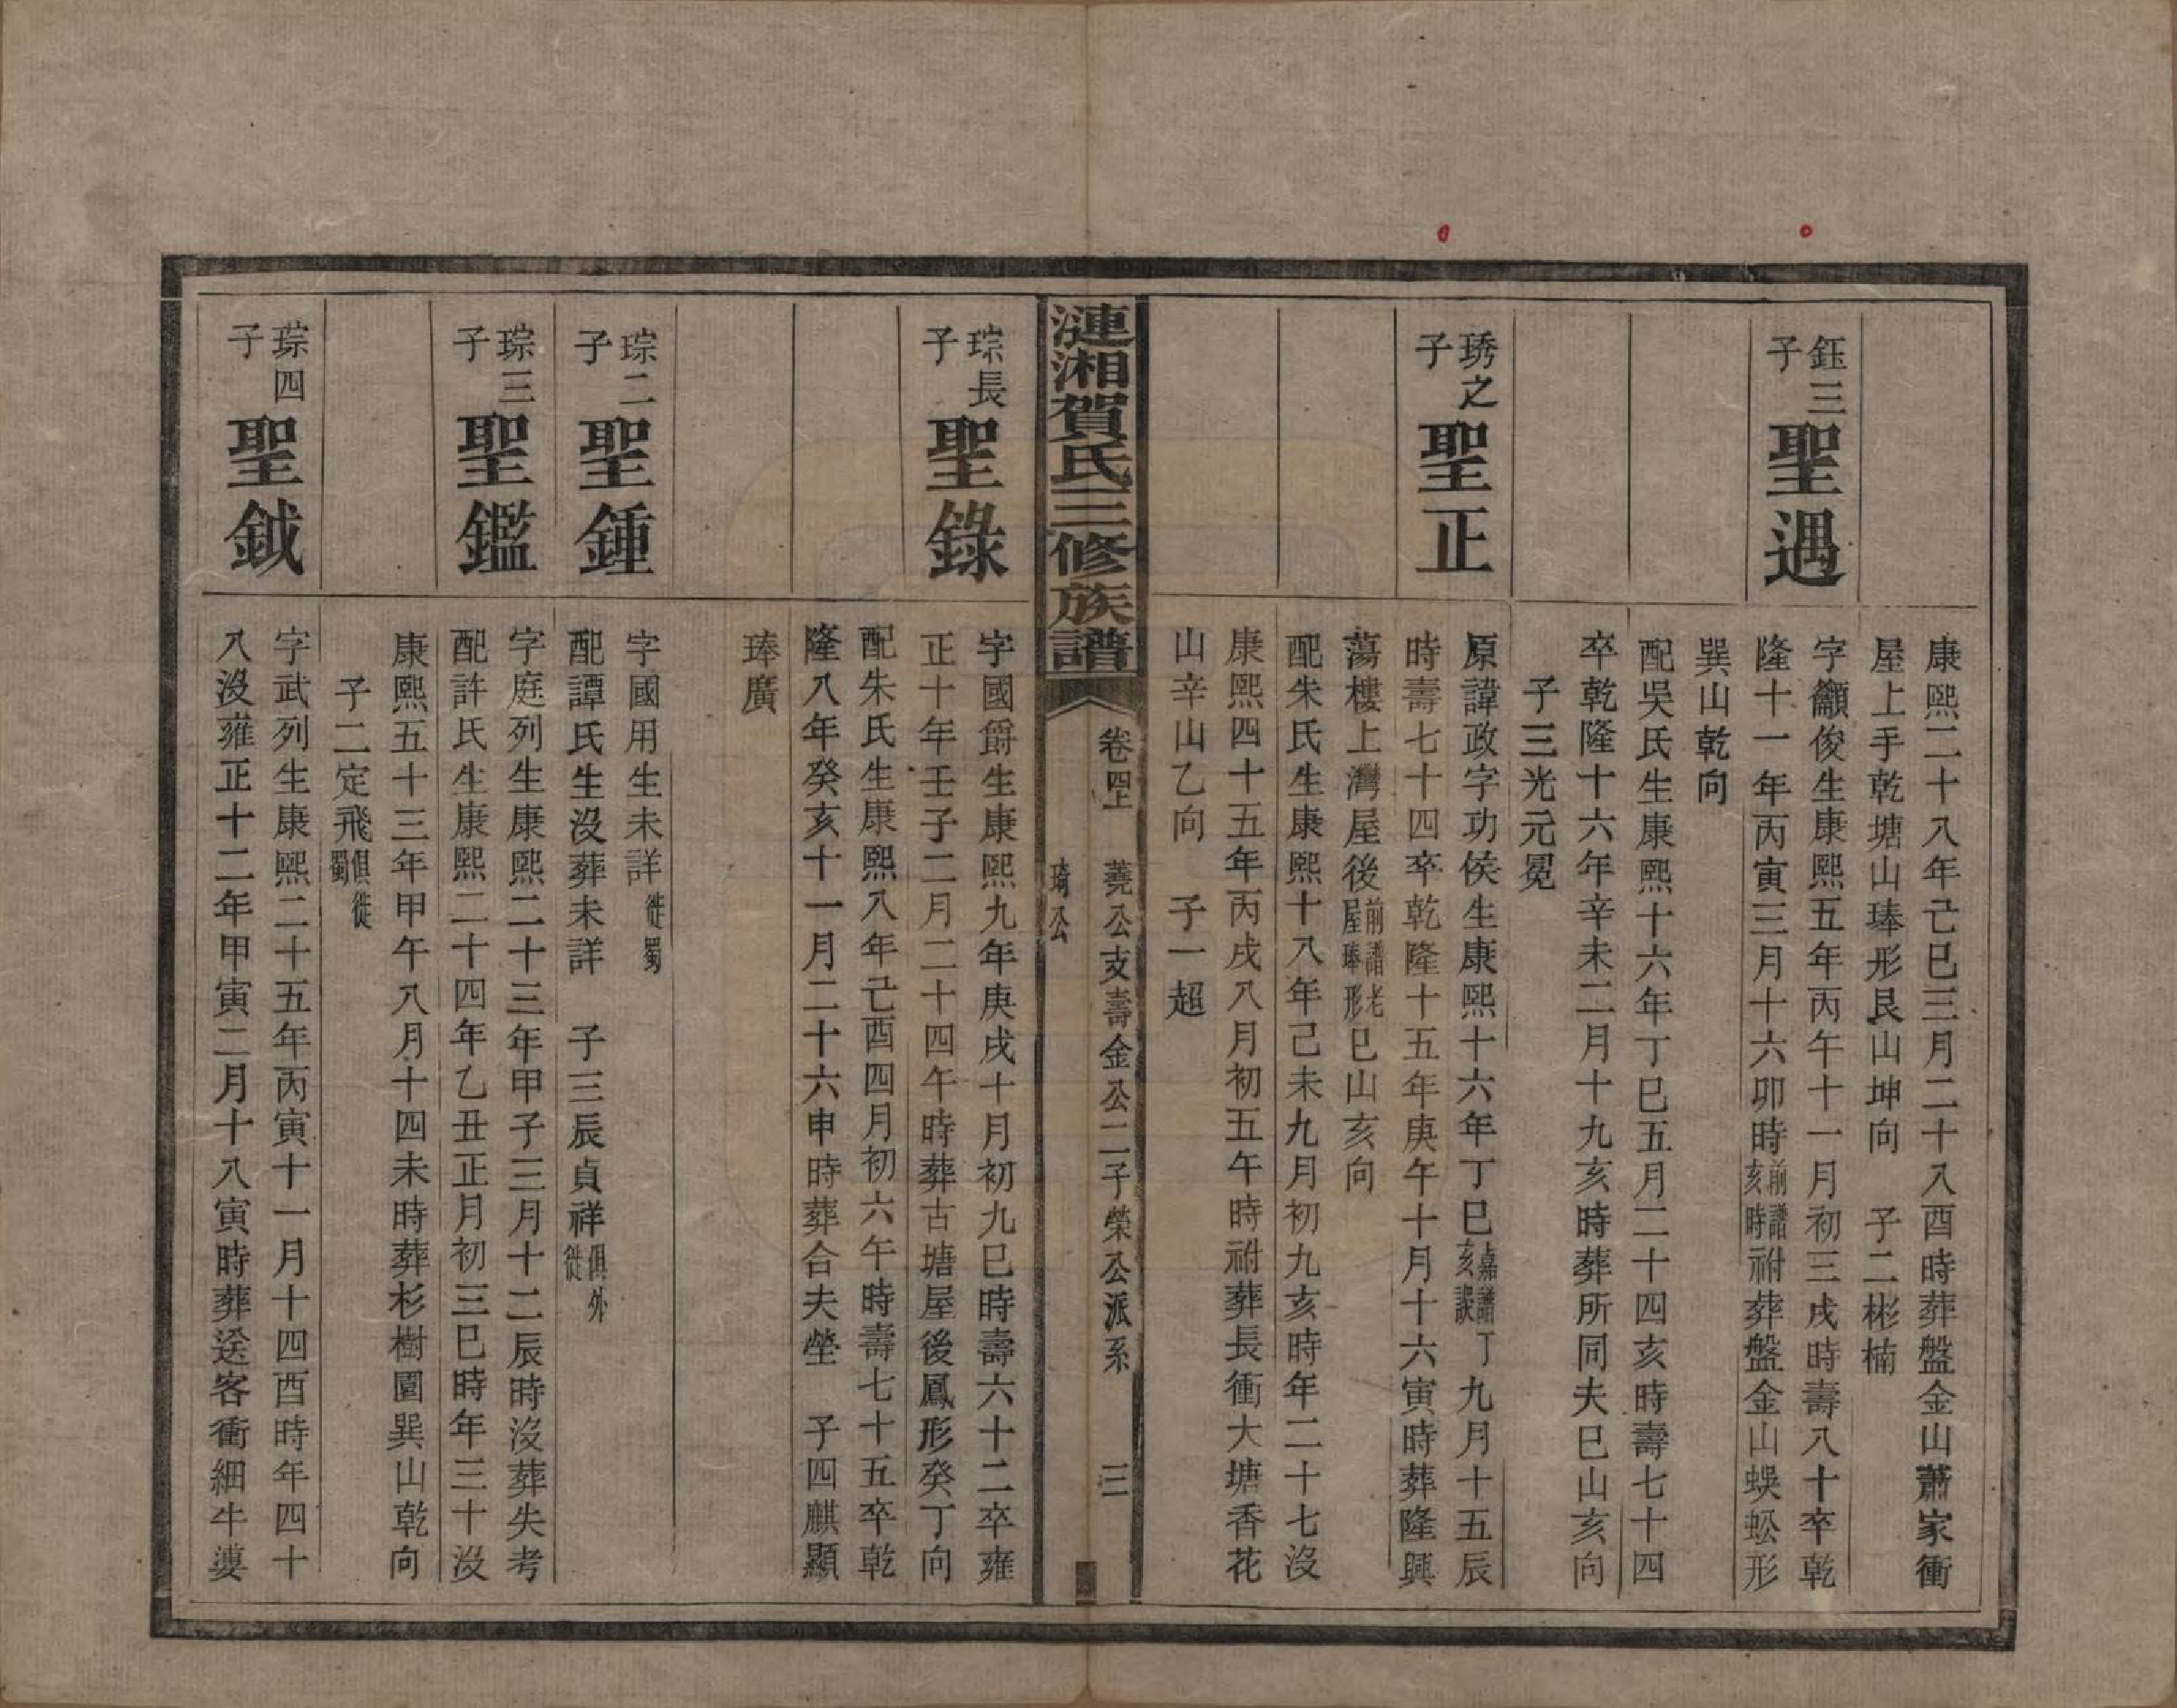 康熙二十八年己巳三月二十八酉時葬盤金山蕭家衝
屋上手乾塘山琫形艮山坤向　子二彬楠
鈺三子　聖遇
字籲俊生康熙五年丙午十一月初三戌時壽八十卒乾
隆十一年丙寅三月十六卯時前譜亥時祔葬盤金山蜈蚣形
巽山乾向
配吳氏生康熙十六年丁巳五月二十四亥時壽七十四
卒乾隆十六年辛未二月十九亥時葬所同夫巳山亥向
子三光元冕
琇之子　聖正
原諱政字功侯生康熙十六年丁巳嘉譜亥誤丁九月十五辰
時壽七十四卒乾隆十五年庚午十月十六寅時葬隆興
蕩樓上灣屋後前譜老屋琫形巳山亥向
配朱氏生康熙十八年己未九月初九亥時年二十七沒
康熙四十五年丙戌八月初五午時祔葬長衝大塘香花
山辛山乙向　子一超
漣湘賀氏三修族譜
卷四上　蕘公支壽金公二子榮公派系　三
琦公
琮長子　聖錄
字國爵生康熙九年庚戌十月初九巳時壽六十二卒雍
正十年壬子二月二十四午時葬古塘屋後鳳形癸丁向
配朱氏生康熙八年己酉四月初六午時壽七十五卒乾
隆八年癸亥十一月二十六申時葬合夫塋　子四麒顯
琫廣
琮二子　聖鍾
字國用生未詳徙蜀
配譚氏生沒葬未詳　子三辰貞祥俱外徙
琮三子　聖鑑
字庭列生康熙二十三年甲子三月十二辰時沒葬失考
配許氏生康熙二十四年乙丑正月初三巳時年三十沒
康熙五十三年甲午八月十四未時葬杉樹園巽山乾向
子二定飛俱徙蜀
琮四子　聖鉞
字武列生康熙二十五年丙寅十一月十四酉時年四十
八沒雍正十二年甲寅二月十八寅時葬送客衝細牛婆